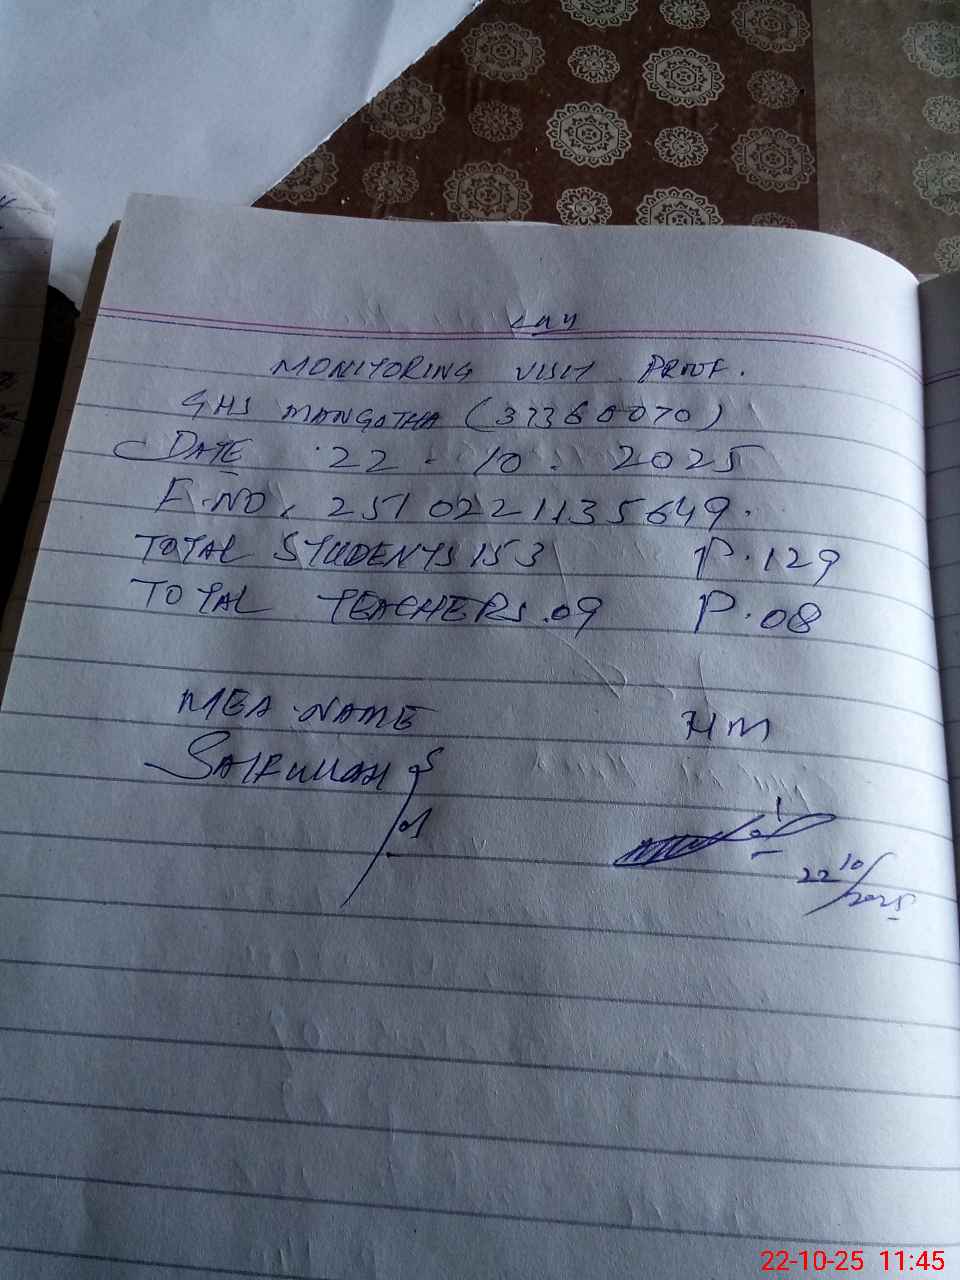 MONITORING VISIT PROOF.
GHS MANGOTHA (37360070)
DATE 22-10-2025
F.NO. 2510221135649.
TOTAL STUDENTS 153 P.129
TOTAL TEACHERS.09 P.08
MEA NAME HM
SAIFULLAH
22/10/2025
22-10-25 11:45